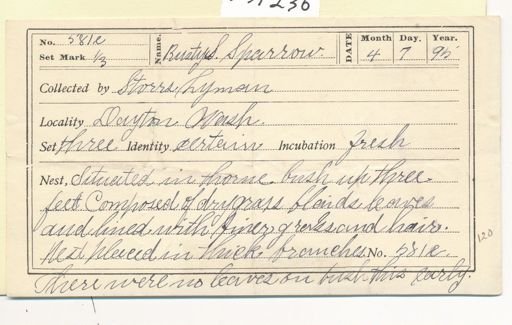 No. 581e Name. Rusty S. Sparrow. DATE Month Day. Year.
Set Mark 1/3 4 7 95
Collected by Storrs Lyman
Locality Dayton Wash.
Set three Identity certain Incubation fresh
Nest, Situated in thorne bush up three
feet Composed of dry grass blands leaves
and lined with finer and hair.
Nest placed in thick branches No. 581e.
There were no leaves on bush this early.
120